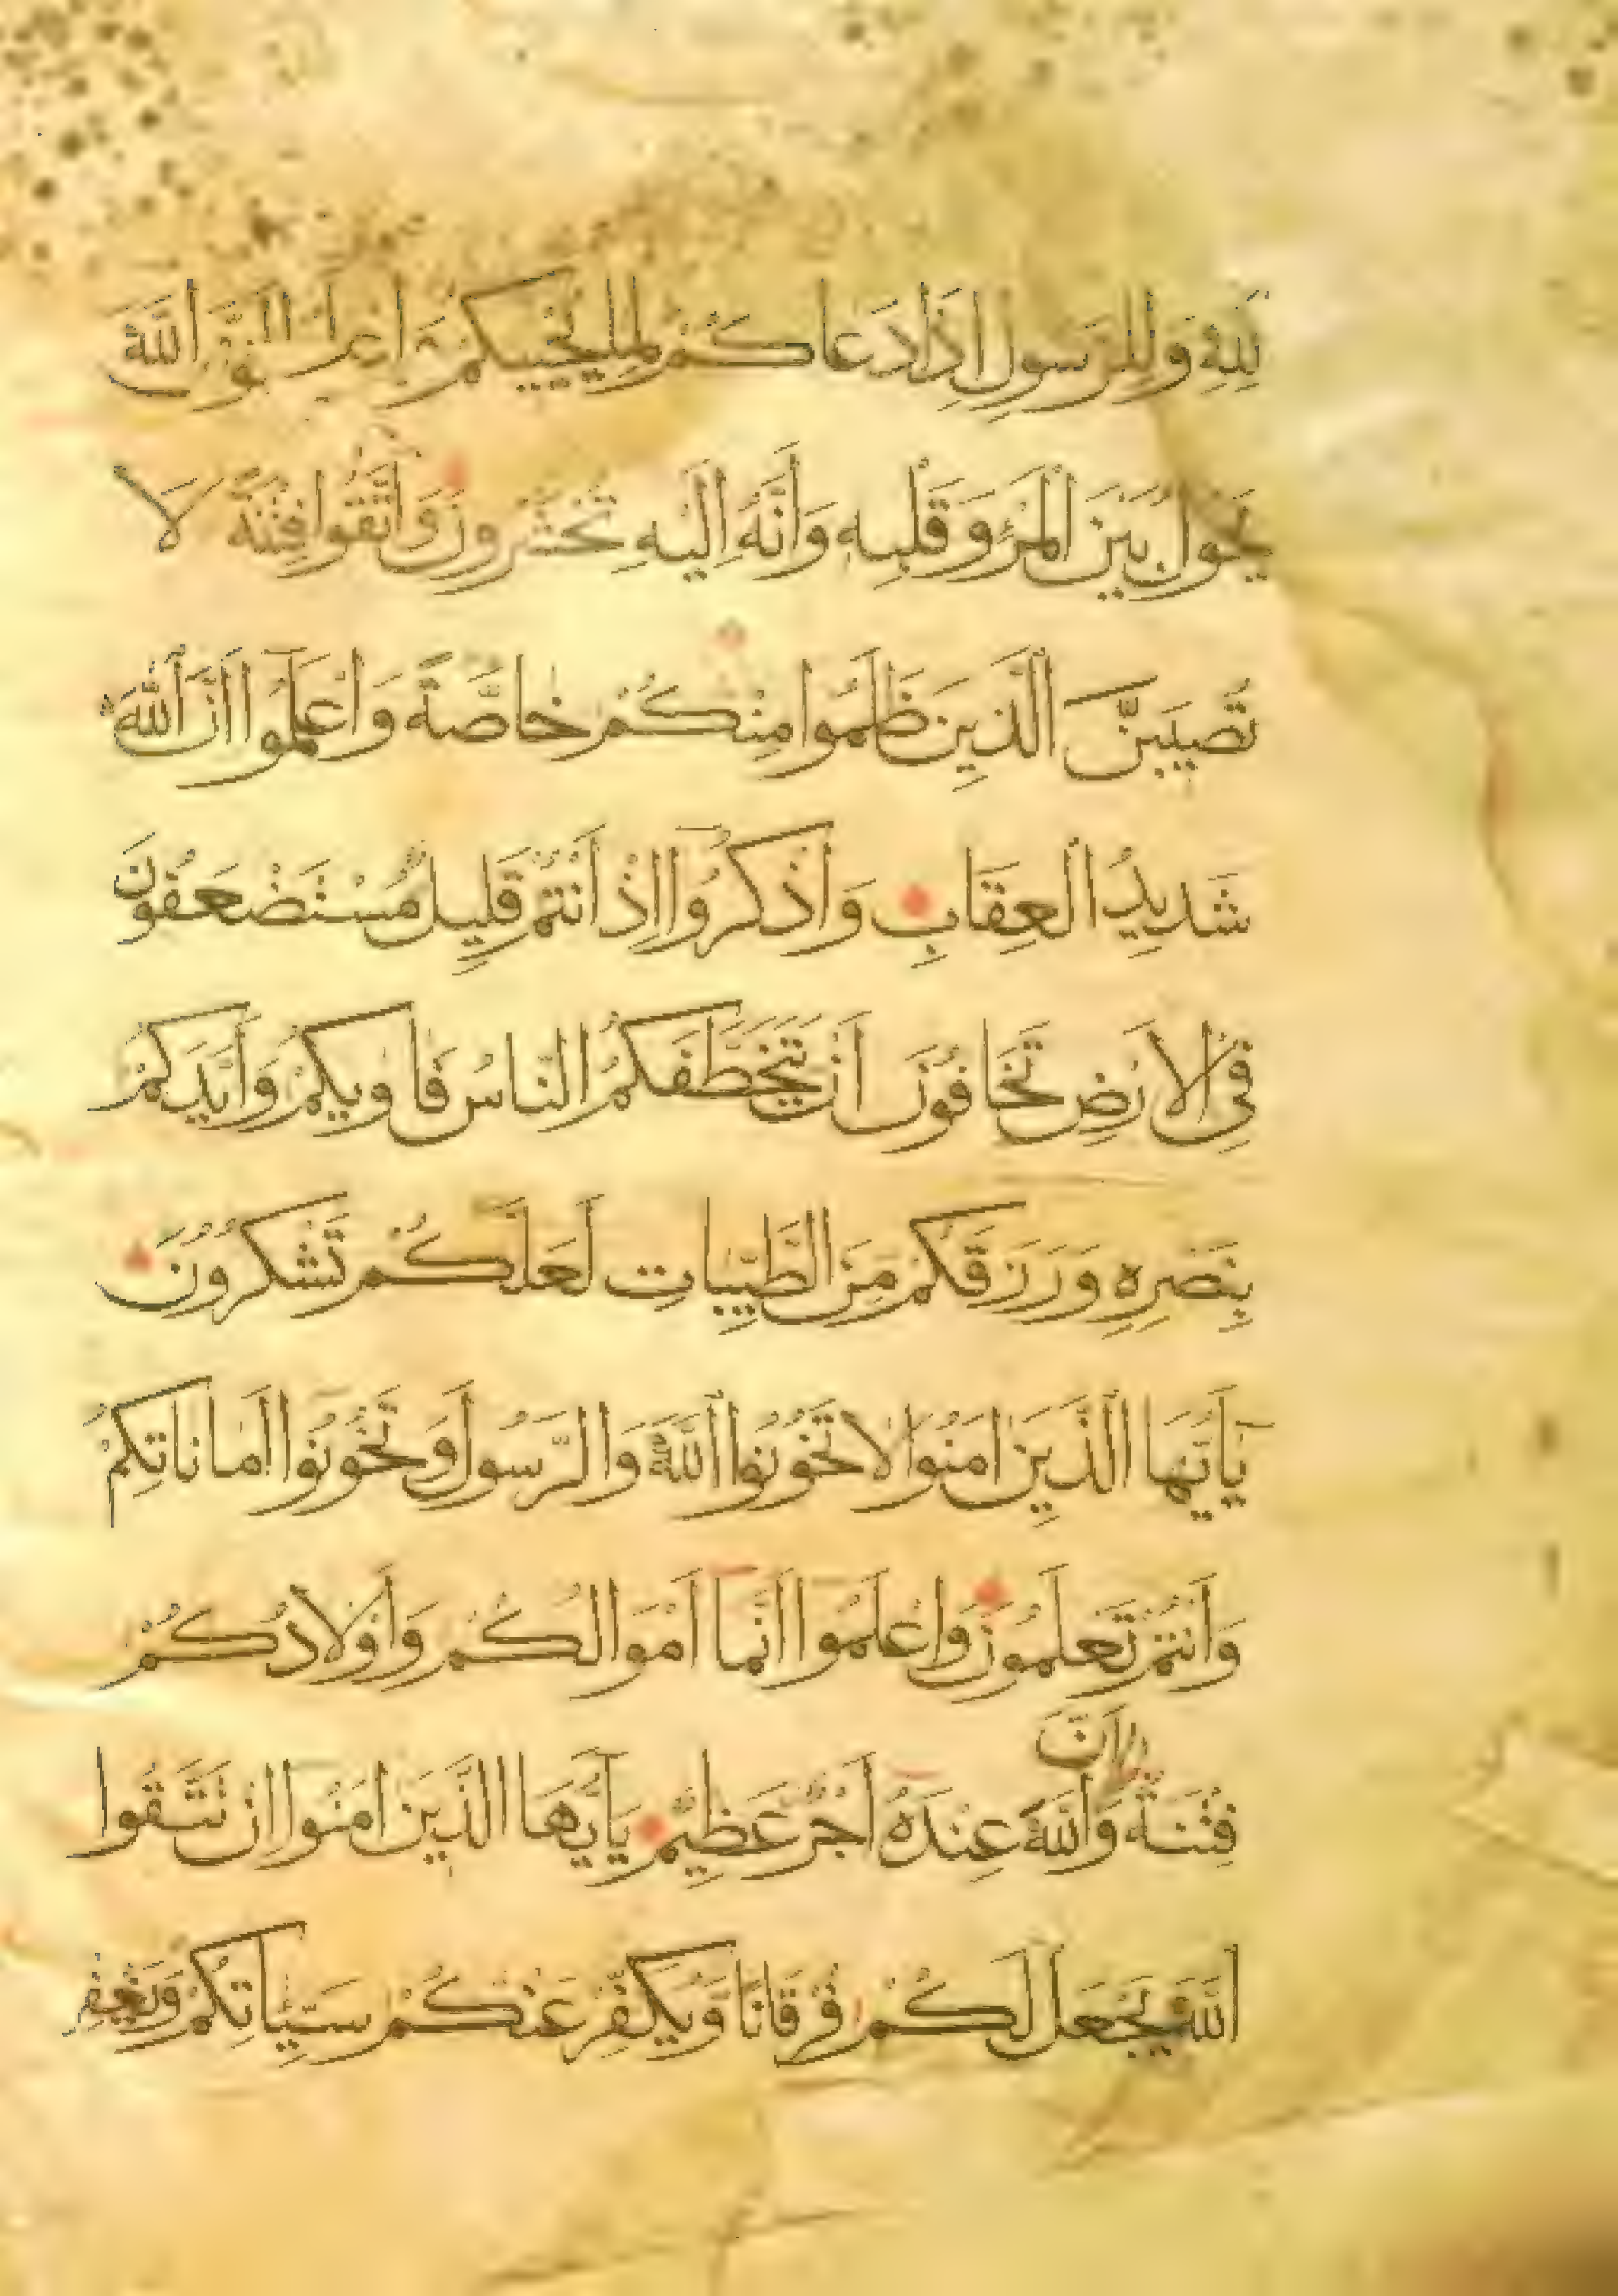 لِلّٰهِ وَلِلرَّسُولِ اِذَا دَعَاكُمْ لِمَا يُحْيِيكُمْ وَاعْلَمُوا اَنَّ اللّٰهَ
يَحُولُ بَيْنَ الْمَرْءِ وَقَلْبِهِ وَاَنَّهُ اِلَيْهِ تُحْشَرُونَ وَاتَّقُوا فِتْنَةً لَا
تُصِيبَنَّ الَّذِينَ ظَلَمُوا مِنْكُمْ خَاصَّةً وَاعْلَمُوا اَنَّ اللّٰهَ
شَدِيدُ الْعِقَابِ وَاذْكُرُوا اِذْ اَنْتُمْ قَلِيلٌ مُسْتَضْعَفُونَ
فِي الْاَرْضِ تَخَافُونَ اَنْ يَتَخَطَّفَكُمُ النَّاسُ فَاٰوٰيكُمْ وَاَيَّدَكُمْ
بِنَصْرِهِ وَرَزَقَكُمْ مِنَ الطَّيِّبَاتِ لَعَلَّكُمْ تَشْكُرُونَ
يَآاَيُّهَا الَّذِينَ اٰمَنُوا لَا تَخُونُوا اللّٰهَ وَالرَّسُولَ وَتَخُونُوا اَمَانَاتِكُمْ
وَاَنْتُمْ تَعْلَمُونَ وَاعْلَمُوا اَنَّمَا اَمْوَالُكُمْ وَاَوْلَادُكُمْ
اَنَّ
فِتْنَةٌ وَاللّٰهَ عِنْدَهُ اَجْرٌ عَظِيمٌ يَآاَيُّهَا الَّذِينَ اٰمَنُوا اِنْ تَتَّقُوا
اللّٰهَ يَجْعَلْ لَكُمْ فُرْقَانًا وَيُكَفِّرْ عَنْكُمْ سَيِّئَاتِكُمْ وَيَغْفِرْ